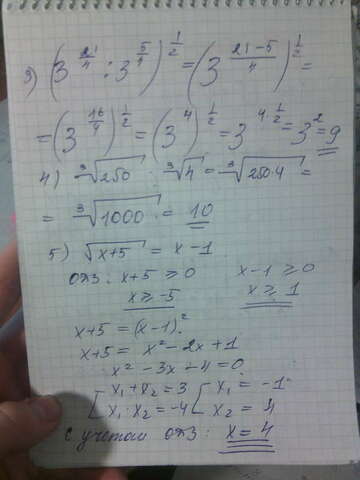 3) (3^(21/4) : 3^(5/4))^(1/2) = (3^((21-5)/4))^(1/2) =
= (3^(16/4))^(1/2) = (3^4)^(1/2) = 3^(4·1/2) = 3^2 = 9
4) ∛250 · ∛4 = ∛(250·4) =
= ∛1000 = 10
5) √(x+5) = x-1
ОДЗ: x+5 ≥ 0 x-1 ≥ 0
x ≥ -5 x ≥ 1
x+5 = (x-1)^2
x+5 = x^2-2x+1
x^2-3x-4=0
[ x₁+x₂=3 [ x₁=-1
x₁·x₂=-4 x₂=4
С учетом ОДЗ: x=4